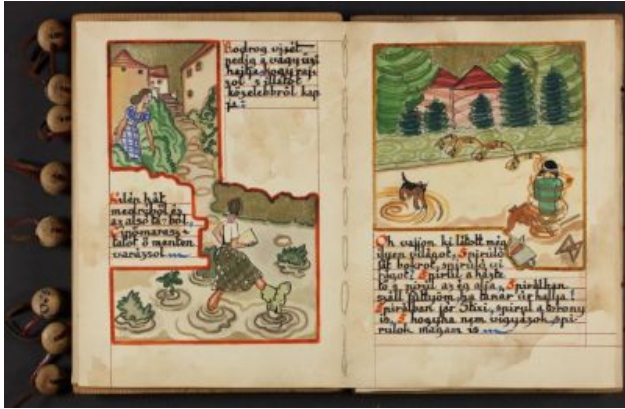 Bodrog vizét
pedig a vágy űzi
hajtja hogy raj-
zol
közelebbről kap
ja:
Kilép hát
medréből és
az alsó
talót ő menten
varázsol
Oh vajjon ki látott még
ilyen világot,
fát bokrot, spiruló vi-
rágot? Spirul a
s pirul az ég alja, Spirálban
száll füttyöm, ha tanár úr hallja!
Spirálban jár Stixi, spirul a torony
is, S hogyha nem vigyázok, spi-
rulok magam is